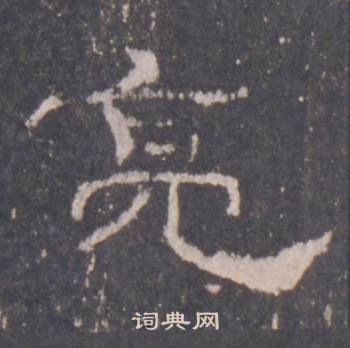 亮
词典网